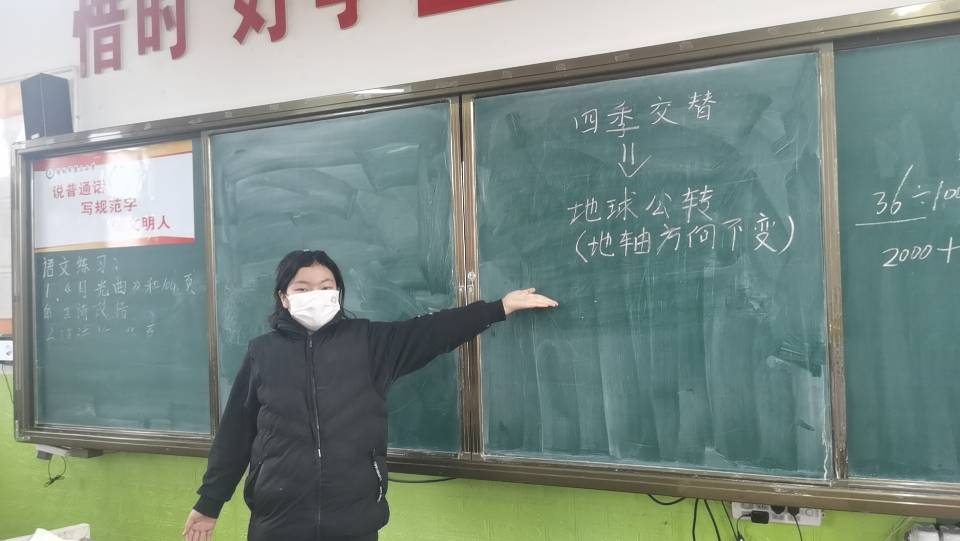 惜时 好学
说普通话
写规范字
文明人
语文练习：
1、《月光曲》和104页
四季交替
⇓
地球公转
(地轴方向下变)
36÷100
2000+